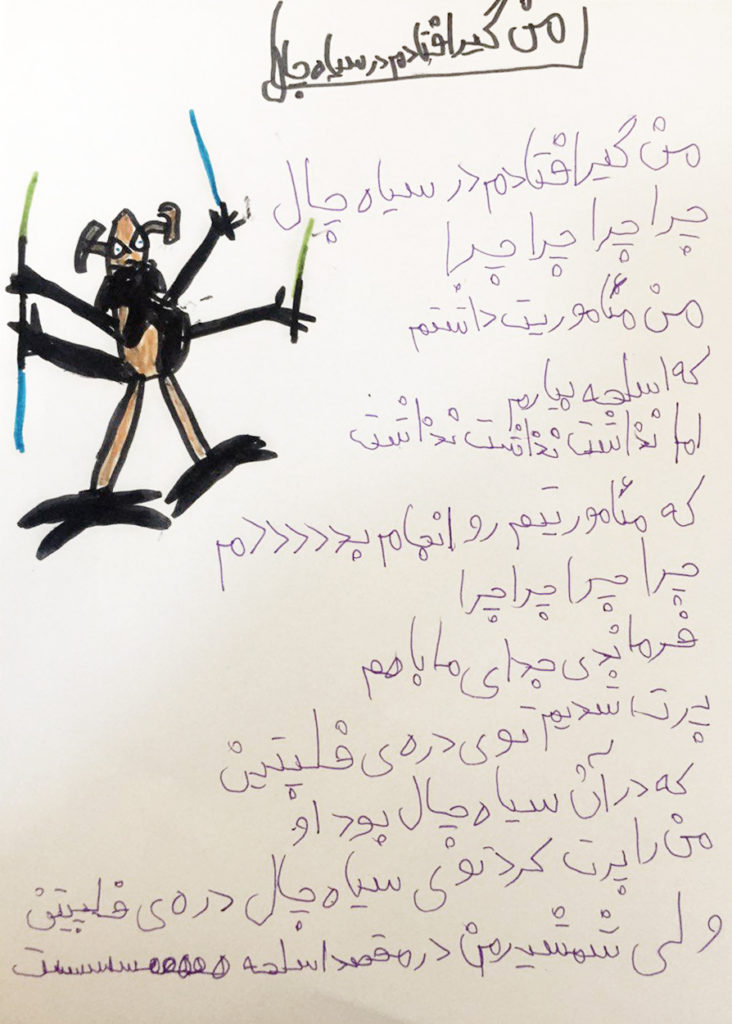 من گیر افتادم در سیاه چال
من گیر افتادم در سیاه چال
چرا چرا چرا چرا
من مئاموریت داشتم
که اسلحه بیارم
اما نذاشت نذاشت نذاشت
که مئاموریتم رو انجام بدددددم
چرا چرا چرا چرا
فرمانده‌ی جدای ما با هم
پرت شدیم توی دره ی فلیپتین
که در آن سیاه چال بود او
من را پرت کرد توی سیاه چال دره ی فلیپتین
ولی شمشیر من در مقصد اسلحه هههههسسسسست